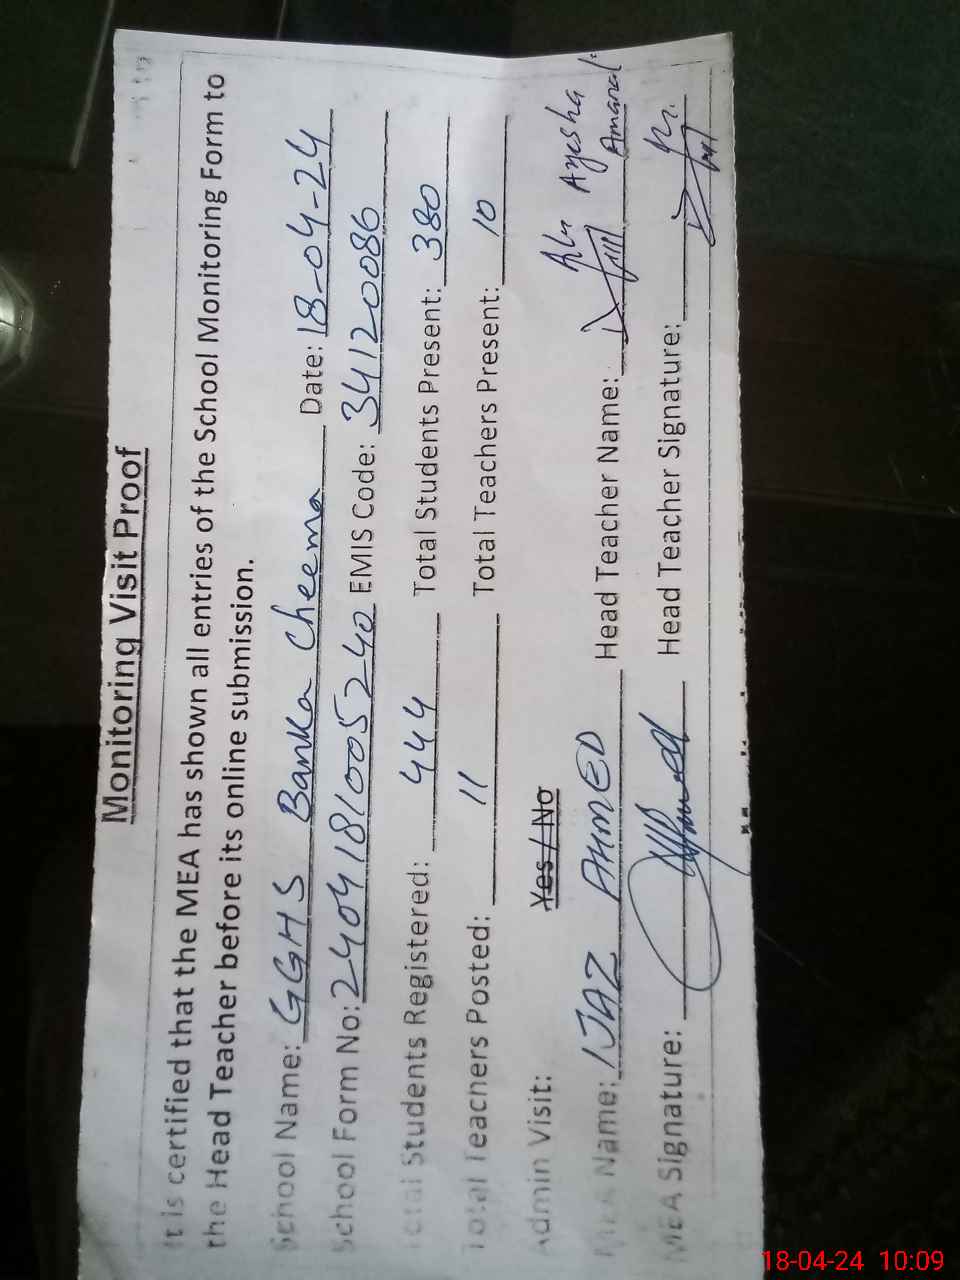 Monitoring Visit Proof
It is certified that the MEA has shown all entries of the School Monitoring Form to
the Head Teacher before its online submission.
School Name: GGHS Banka Cheema Date: 18-04-24
School Form No: 2404181005240 EMIS Code: 34120086
Total Students Registered: 444 Total Students Present: 380
Total Teachers Posted: 11 Total Teachers Present: 10
Admin Visit: Yes / No
MEA Name: IJAZ AHMED Head Teacher Name: Ayesha
MEA Signature: Head Teacher Signature:
18-04-24 10:09